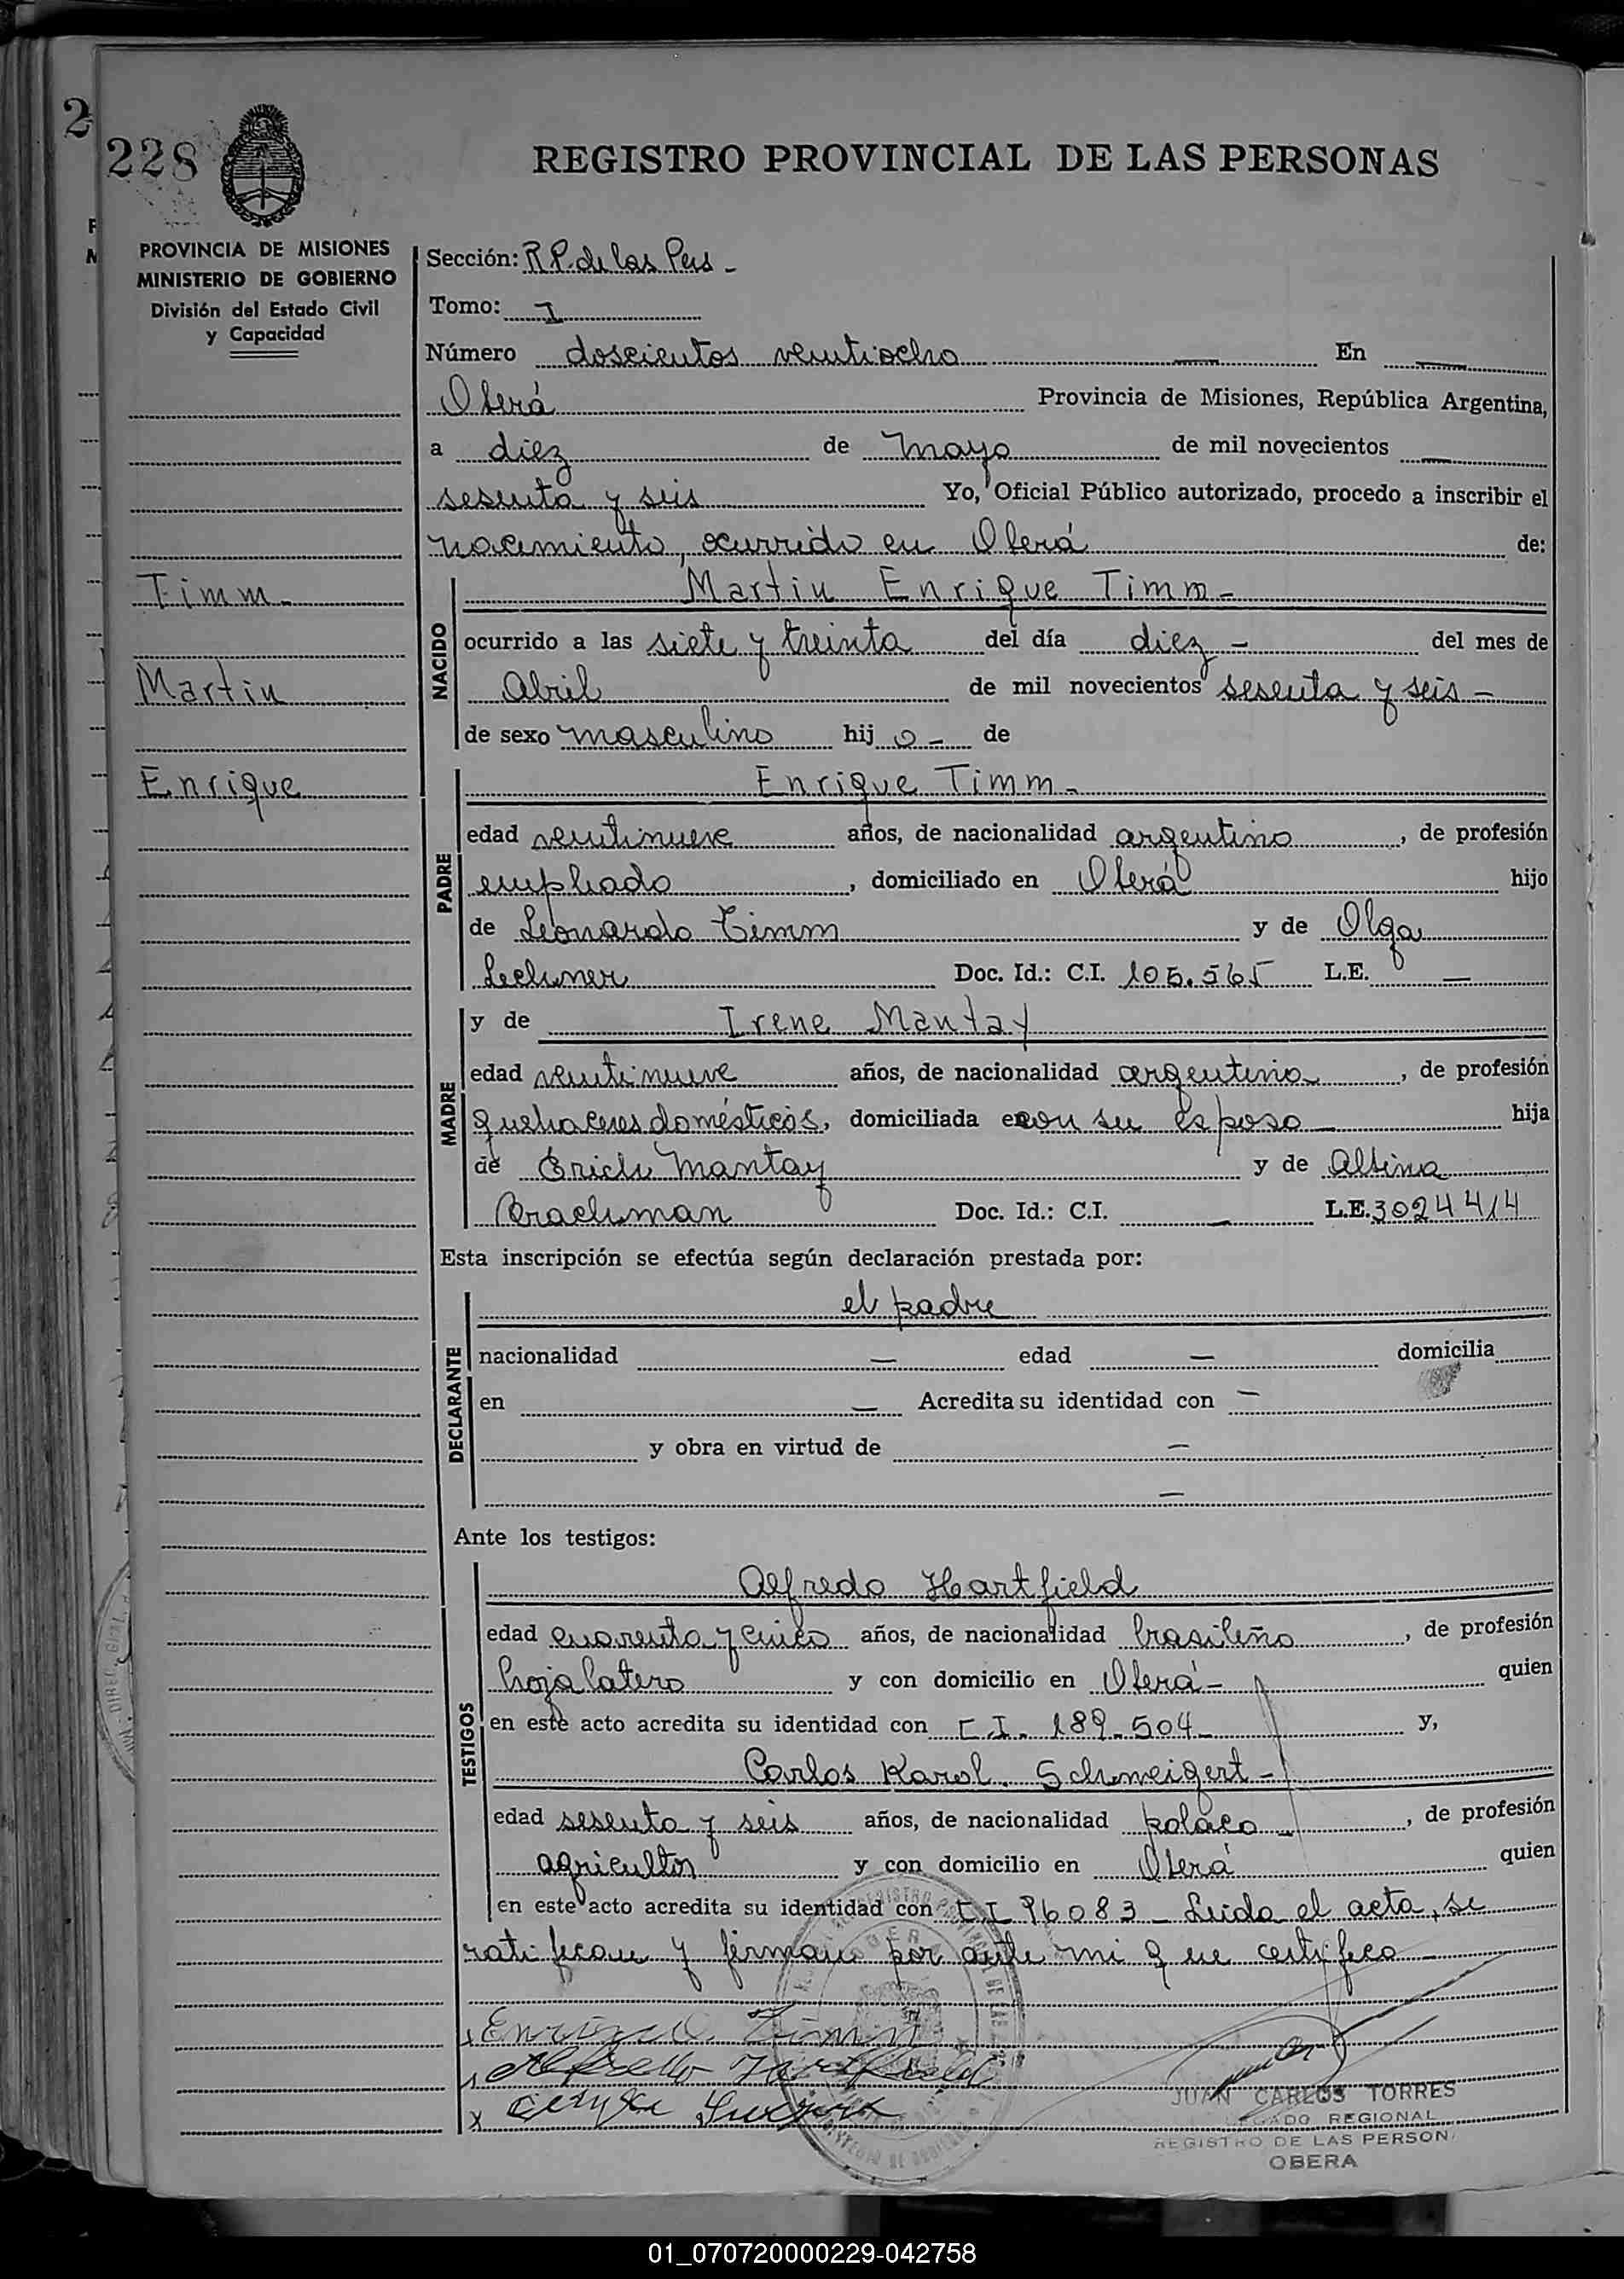 2
228
REGISTRO PROVINCIAL DE LAS PERSONAS
PROVINCIA DE MISIONES
MINISTERIO DE GOBIERNO
División del Estado Civil
y Capacidad
Sección: R.P. de las Pers -
Tomo: I
Número doscientos veintiocho — En —
Oberá Provincia de Misiones, República Argentina,
a diez de mayo de mil novecientos —
sesenta y seis Yo, Oficial Público autorizado, procedo a inscribir el
nacimiento, ocurrido en Oberá de:
Timm -
Martin
Enrique
NACIDO
Martin Enrique Timm -
ocurrido a las siete y treinta del día diez - del mes de
Abril de mil novecientos sesenta y seis -
de sexo masculino hij o - de
PADRE
Enrique Timm -
edad veintinueve años, de nacionalidad argentino, de profesión
empleado, domiciliado en Oberá hijo
de Leonardo Timm y de Olga
Lechner Doc. Id.: C.I. 105.565 L.E. —
MADRE
y de Irene Mantay
edad veintinueve años, de nacionalidad argentina, de profesión
quehaceres domésticos, domiciliada con su esposo - hija
de Erich Mantay y de Albina
Drachman Doc. Id.: C.I. — L.E. 3024414
Esta inscripción se efectúa según declaración prestada por:
DECLARANTE
el padre
nacionalidad — edad — domicilia
en — Acredita su identidad con —
y obra en virtud de —
—
Ante los testigos:
TESTIGOS
Alfredo Hartfield
edad cuarenta y cinco años, de nacionalidad brasileño, de profesión
hojalatero y con domicilio en Oberá - quien
en este acto acredita su identidad con C.I. 189.504 y,
Carlos Karol Schweigert -
edad sesenta y seis años, de nacionalidad polaco -, de profesión
agricultor y con domicilio en Oberá quien
en este acto acredita su identidad con C I 96083 - Leida el acta, se
ratifican y firman por ante mi que certifico -
Enrique Timm
Alfredo Hartfield
JUAN CARLOS TORRES
REGIONAL
REGISTRO DE LAS PERSON
OBERA
01_070720000229-042758